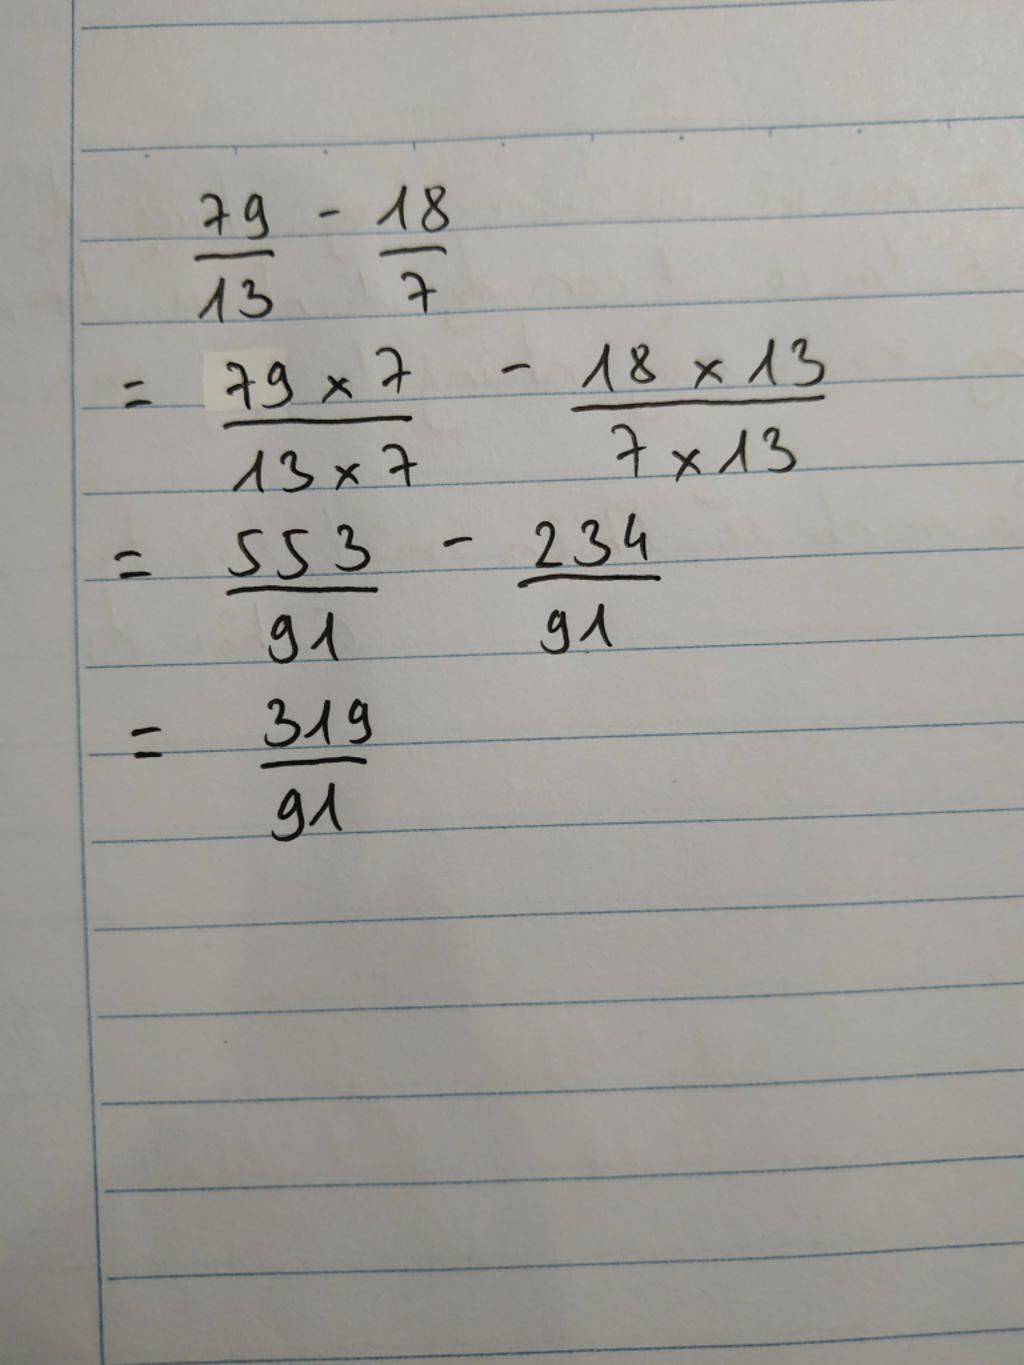 79/13 - 18/7
= 79 × 7/13 × 7 - 18 × 13/7 × 13
= 553/91 - 234/91
= 319/91